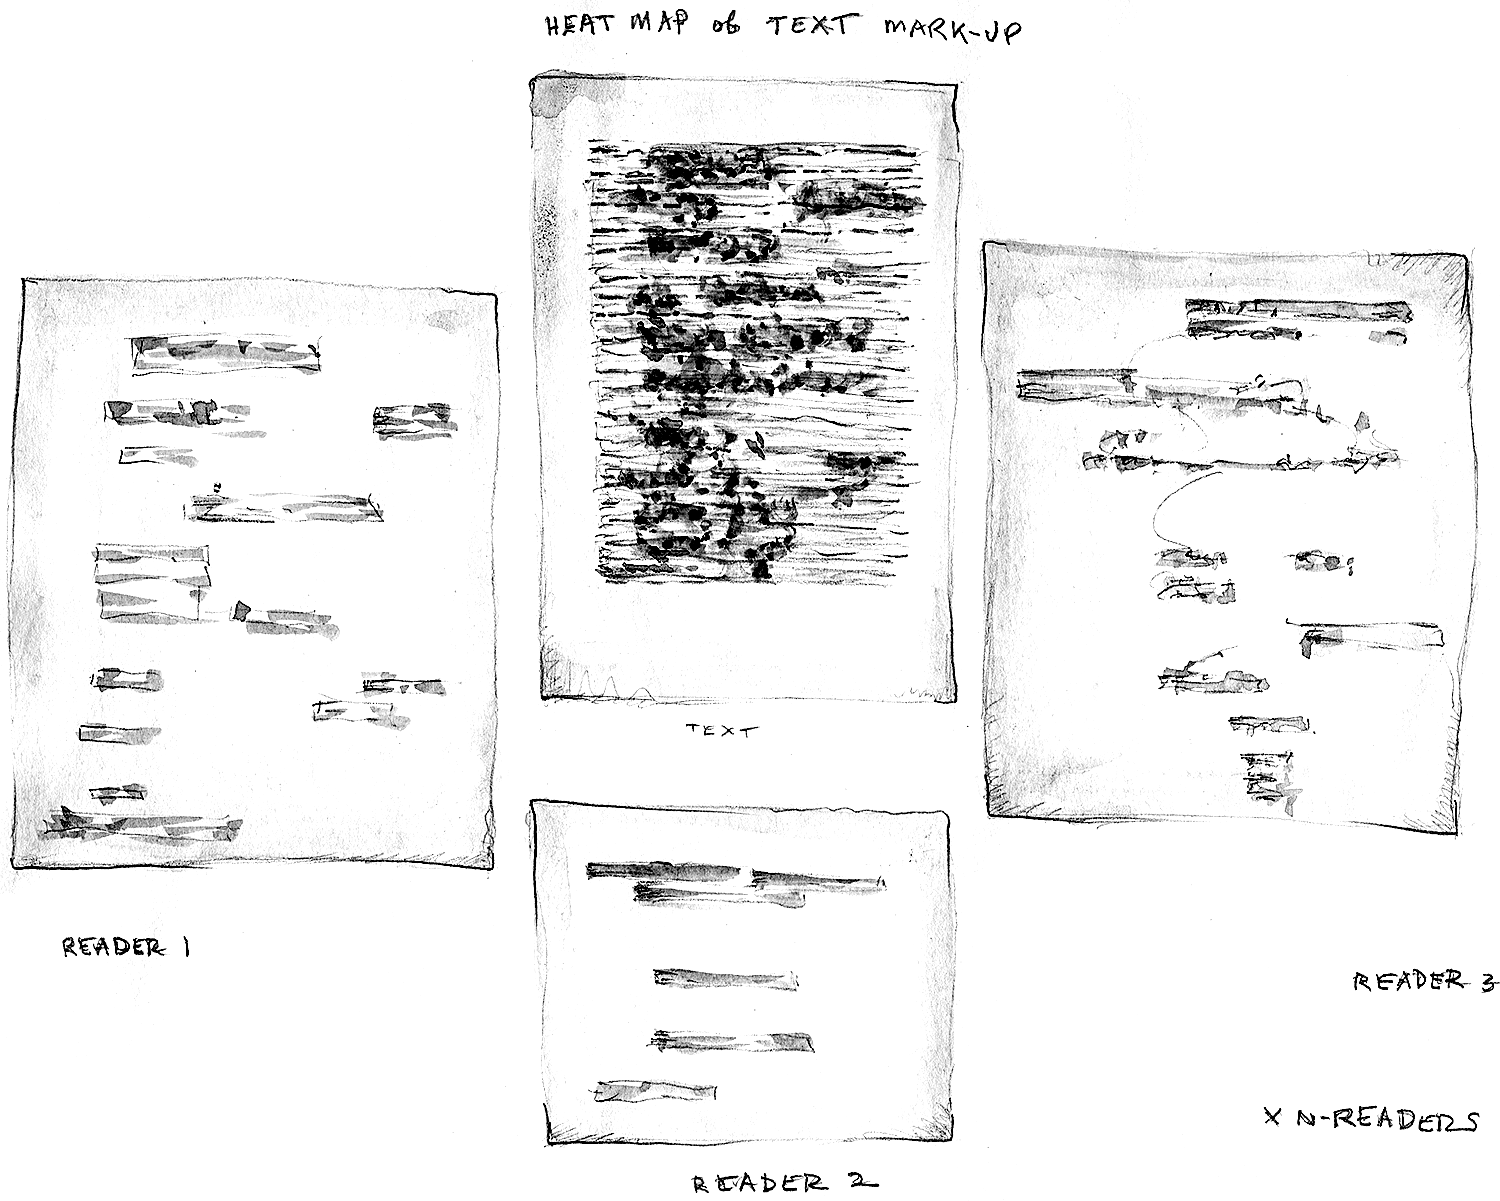 HEAT MAP of TEXT MARK-UP
TEXT
READER 1
READER 3
X N-READERS
READER 2